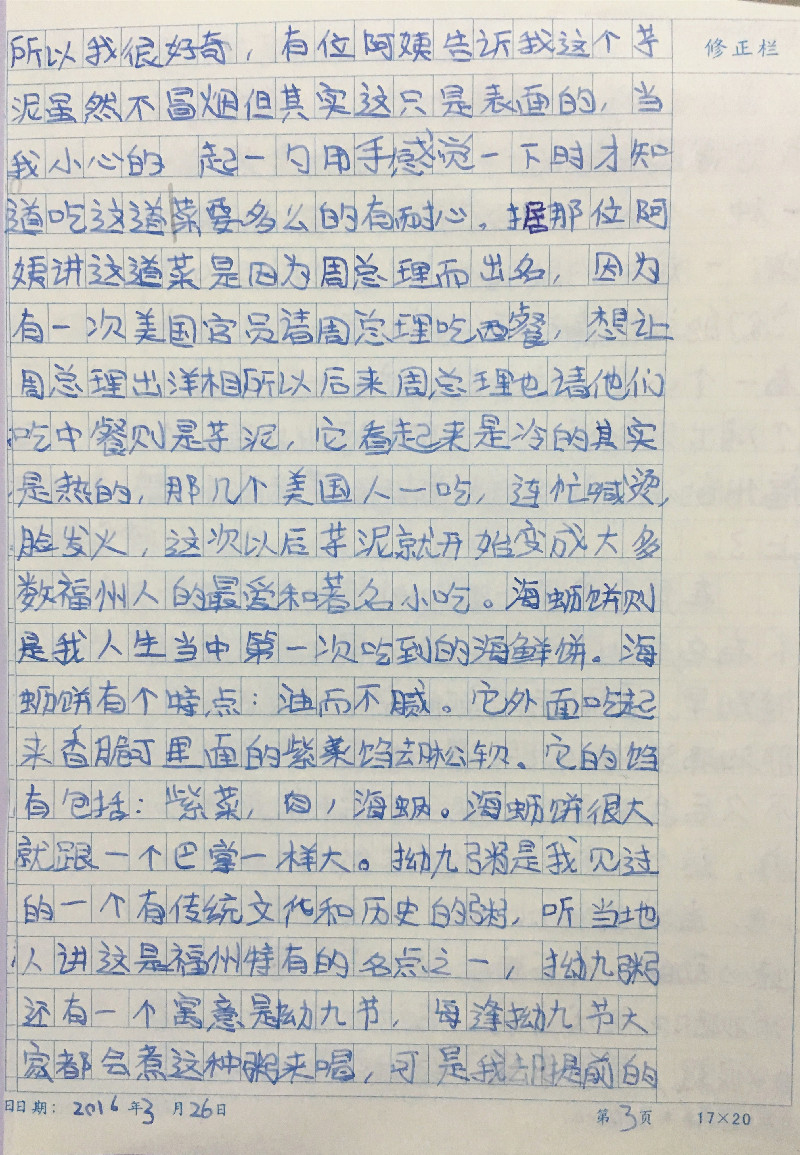 所以我很好奇，有位阿姨告诉我这个芋
修正栏
泥虽然不冒烟但其实这只是表面的，当
我小心的 起一勺用手感觉一下时才知
道吃这道菜要多么的有耐心。据那位阿
姨讲这道菜是因为周总理而出名，因为
有一次美国官员请周总理吃西餐，想让
周总理出洋相所以后来周总理也请他们
吃中餐则是芋泥，它看起来是冷的其实
是热的，那几个美国人一吃，连忙喊烫，
脸发火，这次以后芋泥就开始变成大多
数福州人的最爱和著名小吃。海蛎饼则
是我人生当中第一次吃到的海鲜饼。海
蛎饼有个特点：油而不腻。它外面吃起
来香脆可里面的紫菜馅却松软。它的馅
有包括：紫菜，肉，海蛎。海蛎饼很大
就跟一个巴掌一样大。拗九粥是我见过
的一个有传统文化和历史的粥，听当地
人讲这是福州特有的名点之一，拗九粥
还有一个寓意是拗九节，每逢拗九节大
家都会煮这种粥来喝，可是我却提前的
日期：2016年3月26日 第3页 17×20